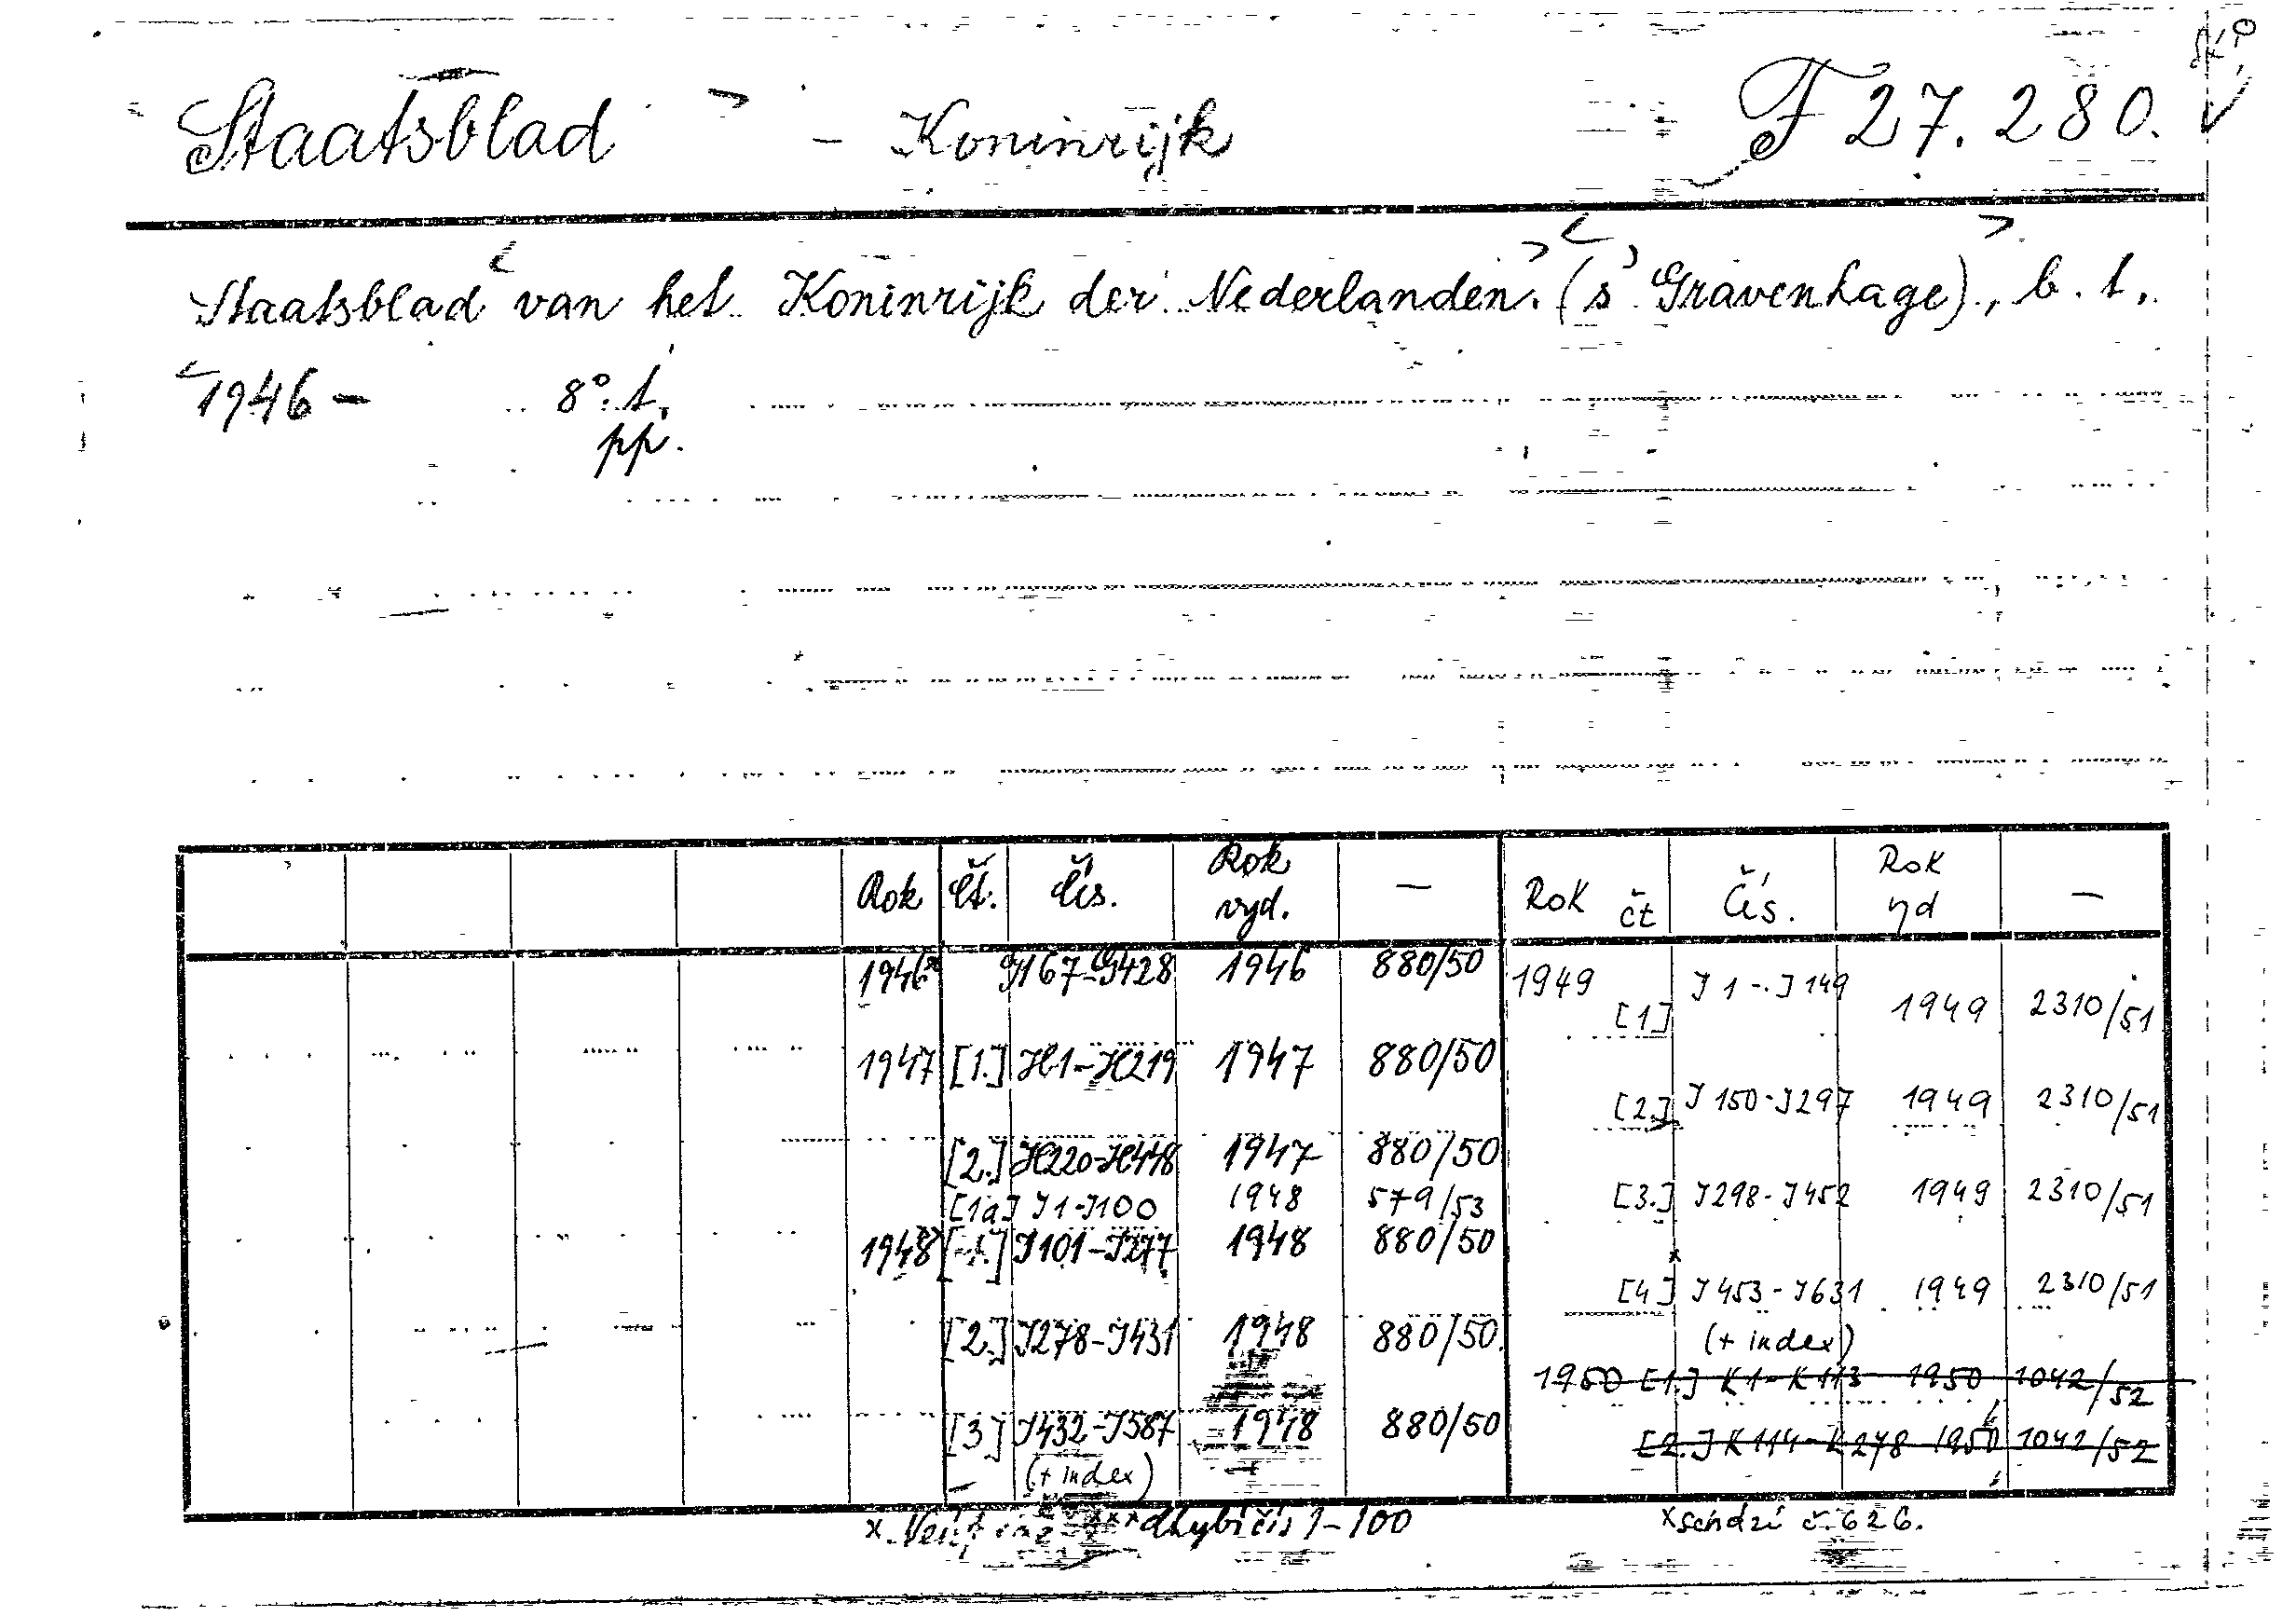 Staatsblad - Koninrijk F 27.280.
Staatsblad van het Koninrijk der Nederlanden. (s' Gravenhage)., b. t.,
1946 - 8°. t,
pp.
Rok Čt. Čís. Rok vyd. — Rok čt Čís. Rok —
1946x G428 1946 880/50 1949 [1] J 1 - J 149 1949 2310/51
1947 [1.] H1-H219 1947 880/50 [2.] J 150-J297 1949 2310/51
[2.] H220-H448 1947 880/50 [3.] J298-J452 1949 2310/51
[1a] J1-J100 1948 579/53
1948xx J101-J277 1948 880/50 x[4] J453-J631 1949 2310/51
[2.] J278-J431 1948 880/50 (+ index)
1950 [1.] K1-K113 1950 1042/52
[3] J432-J587 1948 880/50 [2.] K114-K278 1950 1042/52
(+ index)
xx chybí čís 1-100 x schdzí č. 626.